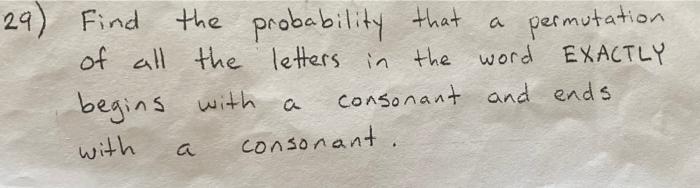 29) Find the probability that a permutation
of all the letters in the word EXACTLY
begins with a consonant and ends
with a consonant.